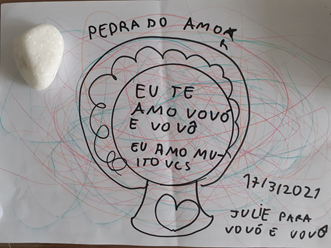 PEDRA DO AMOR
EU TE
AMO VOVÓ
E VOVÔ
EU AMO MU-
ITO VCS
17/3/2021
JULIE PARA
VOVÓ E VOVÔ